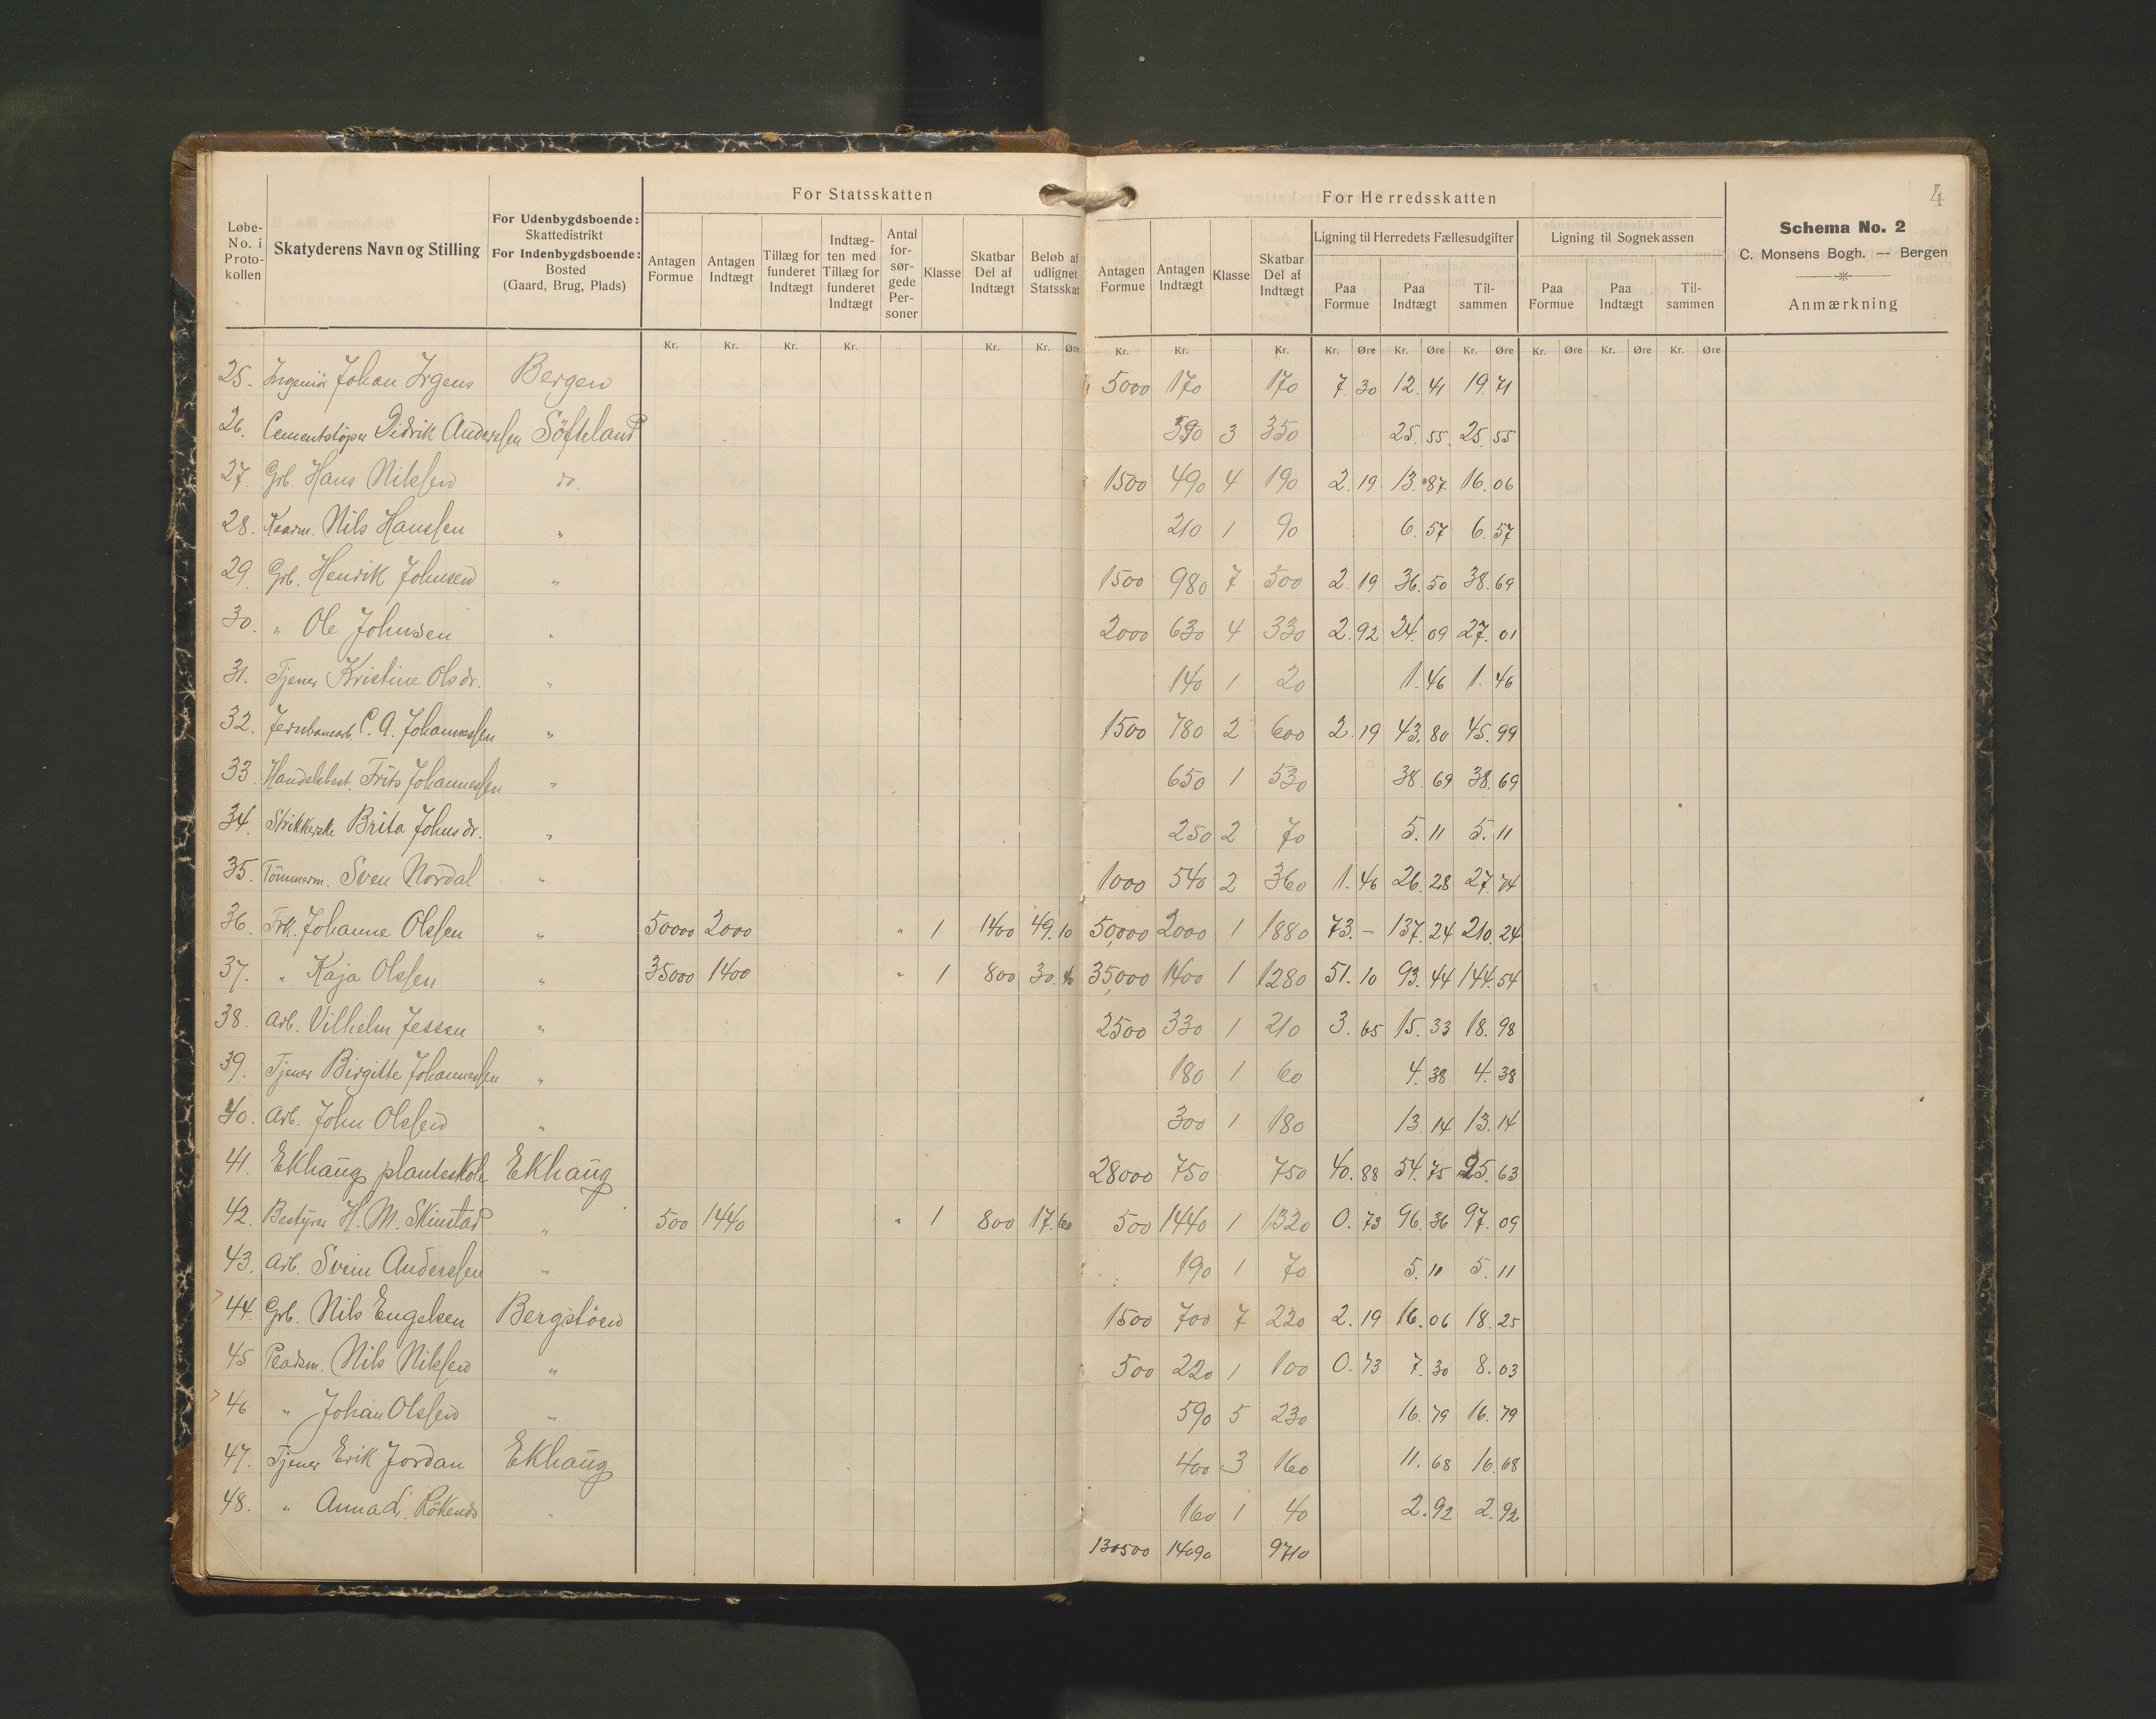 4
For Statsskatten
For Herredsskatten
Schema No. 2
C. Monsens Bogh. — Bergen
Anmærkning
Løbe-No. i Proto-kollen
Skatyderens Navn og Stilling
For Udenbygdsboende: Skattedistrikt
For Indenbygdsboende: Bosted (Gaard, Brug, Plads)
Antagen Formue
Antagen Indtægt
Tillæg for funderet Indtægt
Indtæg-ten med Tillæg for funderet Indtægt
Antal for-sør-gede Per-soner
Klasse
Skatbar Del af Indtægt
Beløb af udlignet Statsskat
Antagen Formue
Antagen Indtægt
Klasse
Skatbar Del af Indtægt
Ligning til Herredets Fællesudgifter
Paa Formue
Paa Indtægt
Til-sammen
Ligning til Sognekassen
Paa Formue
Paa Indtægt
Til-sammen
Kr. Kr. Kr. Kr. Kr. Kr. Øre Kr. Kr. Kr. Kr. Øre Kr. Øre Kr. Øre Kr. Øre Kr. Øre Kr. Øre
25. Ingeniør Johan Irgens Bergen 5000 170 170 7.30 12.41 19.71
26. Cementstöper Didrik Anderssen Söfteland 390 3 350 25.55 25.55
27. Grb. Hans Nilssen do. 1500 490 4 190 2.19 13.87 16.06
28. Kaarm. Nils Hanssen " 210 1 90 6.57 6.57
29 Grb. Henrik Johnsen " 1500 980 7 500 2.19 36.50 38.69
30. " Ole Johnsen " 2000 630 4 330 2.92 24.09 27.01
31. Tjener Kristine Olsdr. " 140 1 20 1.46 1.46
32. Jernbanearb. C. A. Johannessen " 1500 780 2 600 2.19 43.80 45.99
33. Handelsbest. Frits Johannessen " 650 1 530 38.69 38.69
34. Strikkerske Brita Johnsdr. " 250 2 70 5.11 5.11
35. Tömmerm. Sven Nordal " 1000 540 2 360 1.46 26.28 27.74
36. Frk. Johanne Olssen " 50000 2000 " 1 1400 49.10 50,000 2000 1 1880 73.– 137.24 210.24
37. " Kaja Olssen " 35000 1400 " 1 800 30.40 35,000 1400 1 1280 51.10 93.44 144.54
38. Arb. Vilhelm Jessen " 2500 330 1 210 3.65 15.33 18.98
39. Tjener Birgitte Johannessen " 180 1 60 4.38 4.38
40. Arb. John Olssen " 300 1 180 13.14 13.14
41. Ekhaug planteskole Ekhaug 28000 750 750 40.88 54.75 95.63
42. Bestyrer H. M. Skinstad " 500 1440 " 1 800 17.60 500 1440 1 1320 0.73 96.36 97.09
43. Arb. Svein Anderssen " 190 1 70 5.11 5.11
44. Grb. Nils Engelsen Bergstöen 1500 700 7 220 2.19 16.06 18.25
45 Pladsm. Nils Nilssen " 500 220 1 100 0.73 7.30 8.03
46 " Johan Olssen " 590 5 230 16.79 16.79
47. Tjener Erik Jordan Ekhaug 400 3 160 11.68 16.68
48. " Anna L. Rökenes " 160 1 40 2.92 2.92
130500 14090 9710